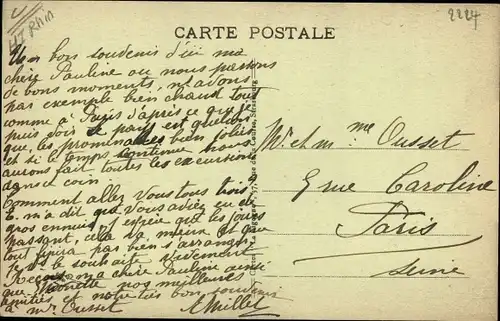 Ht Rhin
2224
CARTE POSTALE
Un bon souvenir d'ici ma
chère Pauline où nous passons
de bons moments, n'avons
par exemple bien chaud tout
comme à Paris d'après ce que je
puis voir. Le pays est
que, les promenades bien jolies
et si le temps continue nous
aurons fait toutes les excursions
du coin.
Comment allez vous tous trois ?
E. m'a dit que vous aviez eu de
gros ennuis j'espère que les jours
passant, cela va mieux et que
tout finira par bien s'arranger,
je vs le souhaite vivement
Reçois ma chère Pauline ainsi
que nos meilleures
amitiés et notre très bon souvenir
à Mr Ousset
AMillet
Mr et Mme Ousset
9 rue Caroline
Paris
Seine